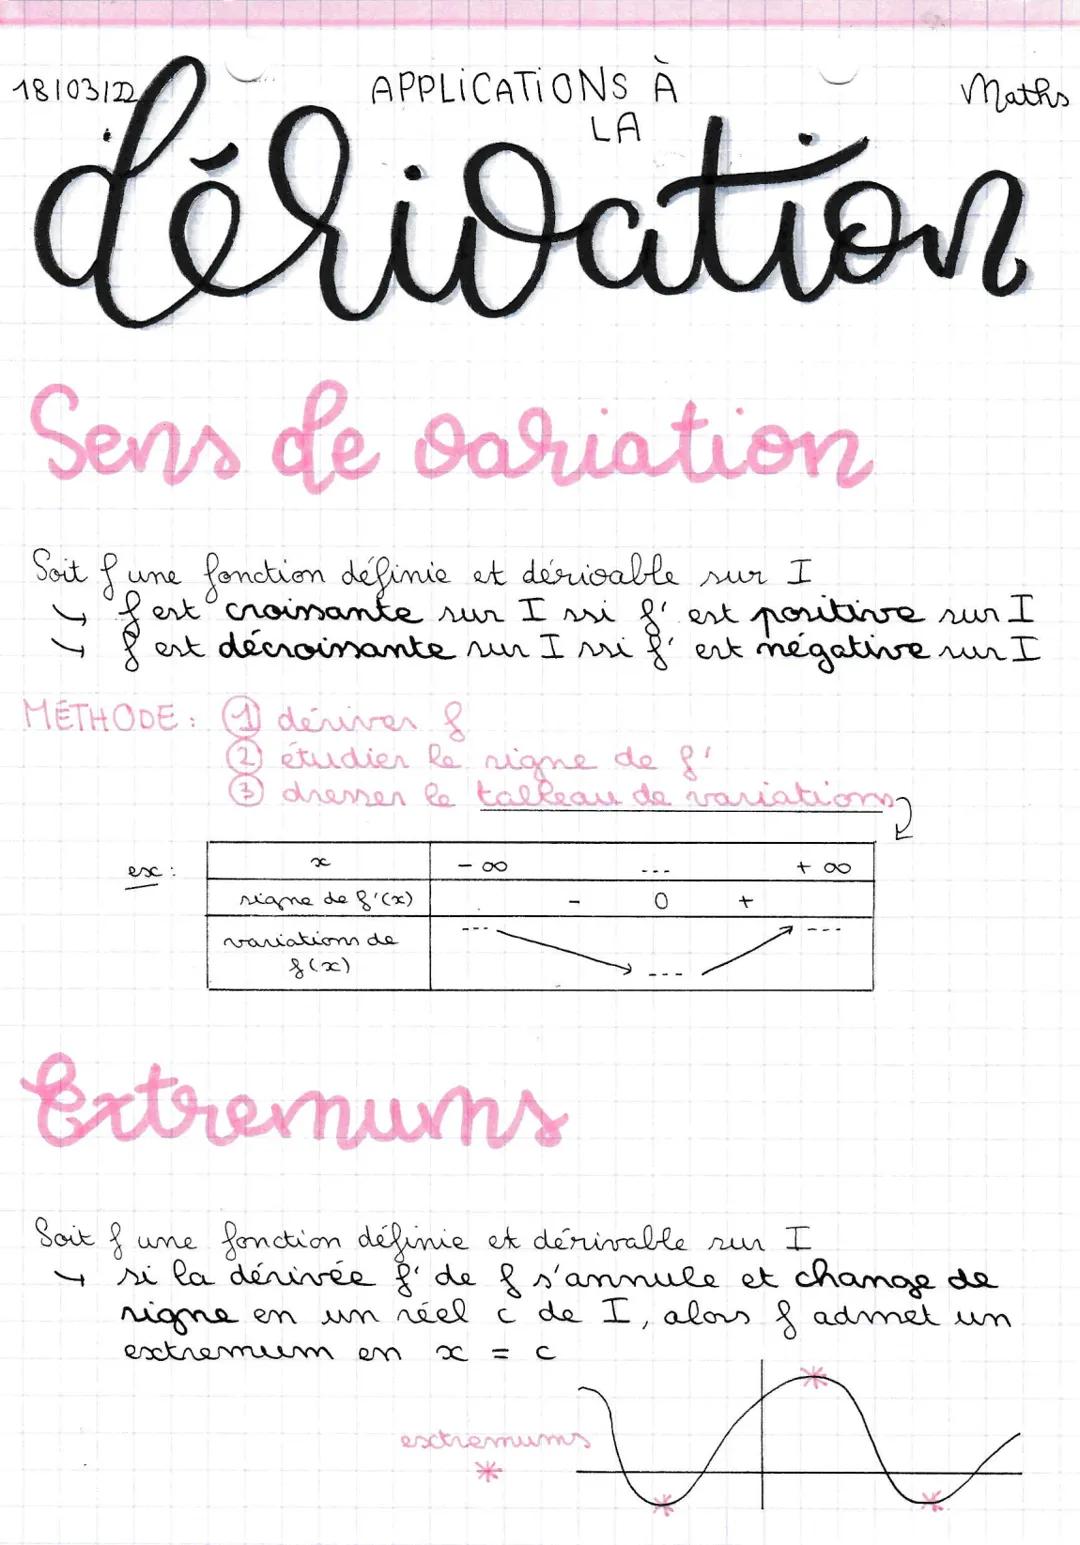 18/03/22
APPLICATIONS À
LA
Maths
dérivation
Sens de variation
Soit f une fonction définie et dérivable sur I
↳ f est croissante sur I ssi f' est positive sur I
↳ f est décroissante sur I ssi f' est négative sur I
MÉTHODE : ① dériver f
② étudier le signe de f'
③ dresser le tableau de variations
ex :
x - ∞ ... + ∞
signe de f'(x) - 0 +
variations de
f(x)
--- --- ---
Extremums
Soit f une fonction définie et dérivable sur I
→ si la dérivée f' de f s'annule et change de
signe en un réel c de I, alors f admet un
extremum en x = c
extremums